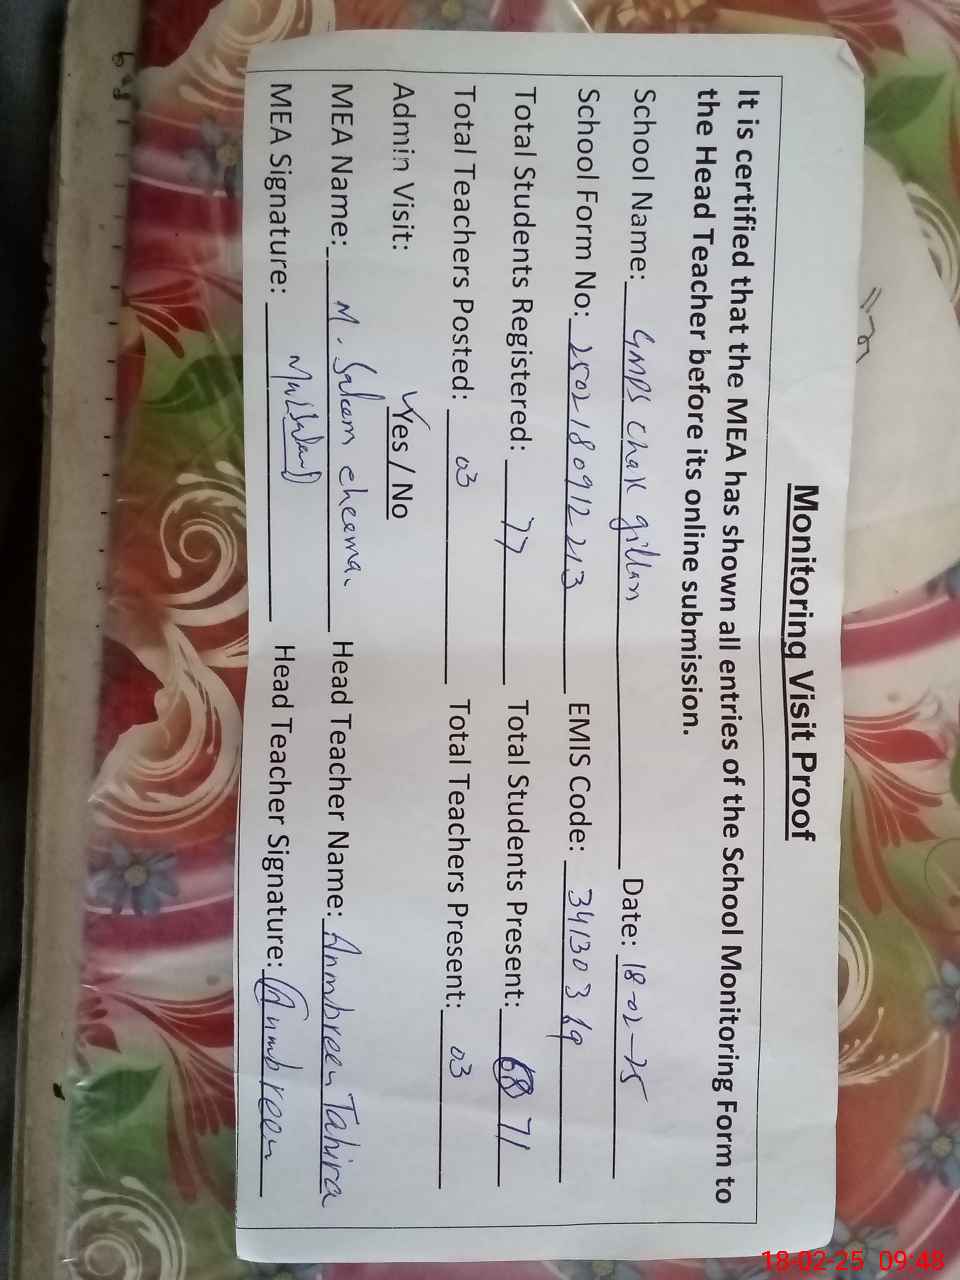 Monitoring Visit Proof
It is certified that the MEA has shown all entries of the School Monitoring Form to
the Head Teacher before its online submission.
School Name: GMPS Chak gillan Date: 18-02-25
School Form No: 2502180912213 EMIS Code: 34130369
Total Students Registered: 77 Total Students Present: 68 71
Total Teachers Posted: 03 Total Teachers Present: 03
Admin Visit: Yes / No
MEA Name: M. Saleem cheema. Head Teacher Name: Anmbreen Tahira
MEA Signature: Head Teacher Signature: Aumbreen
18-02-25 09:48